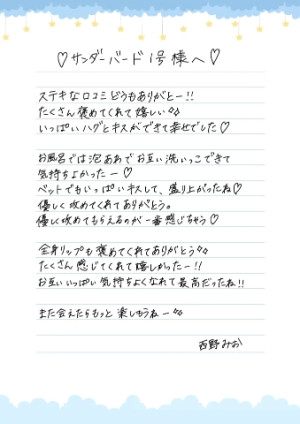 ♡サンダーバード1号様へ♡
ステキな口コミどうもありがとー!!
たくさん褒めてくれて嬉しい✨
いっぱいハグとキスができて幸せでした♡
お風呂では泡あわでお互い洗いっこできて
気持ちよかったー♡
ベットでもいっぱいキスして、盛り上がったね♡
優しく攻めてくれてありがとう。
優しく攻めてもらえるのが一番感じちゃう♡
全身リップも褒めてくれてありがとう✨
たくさん感じてくれて嬉しかったー!!
お互いいっぱい気持ちよくなれて最高だったね!!
また会えたらもっと楽しもうねー✨
西野みお